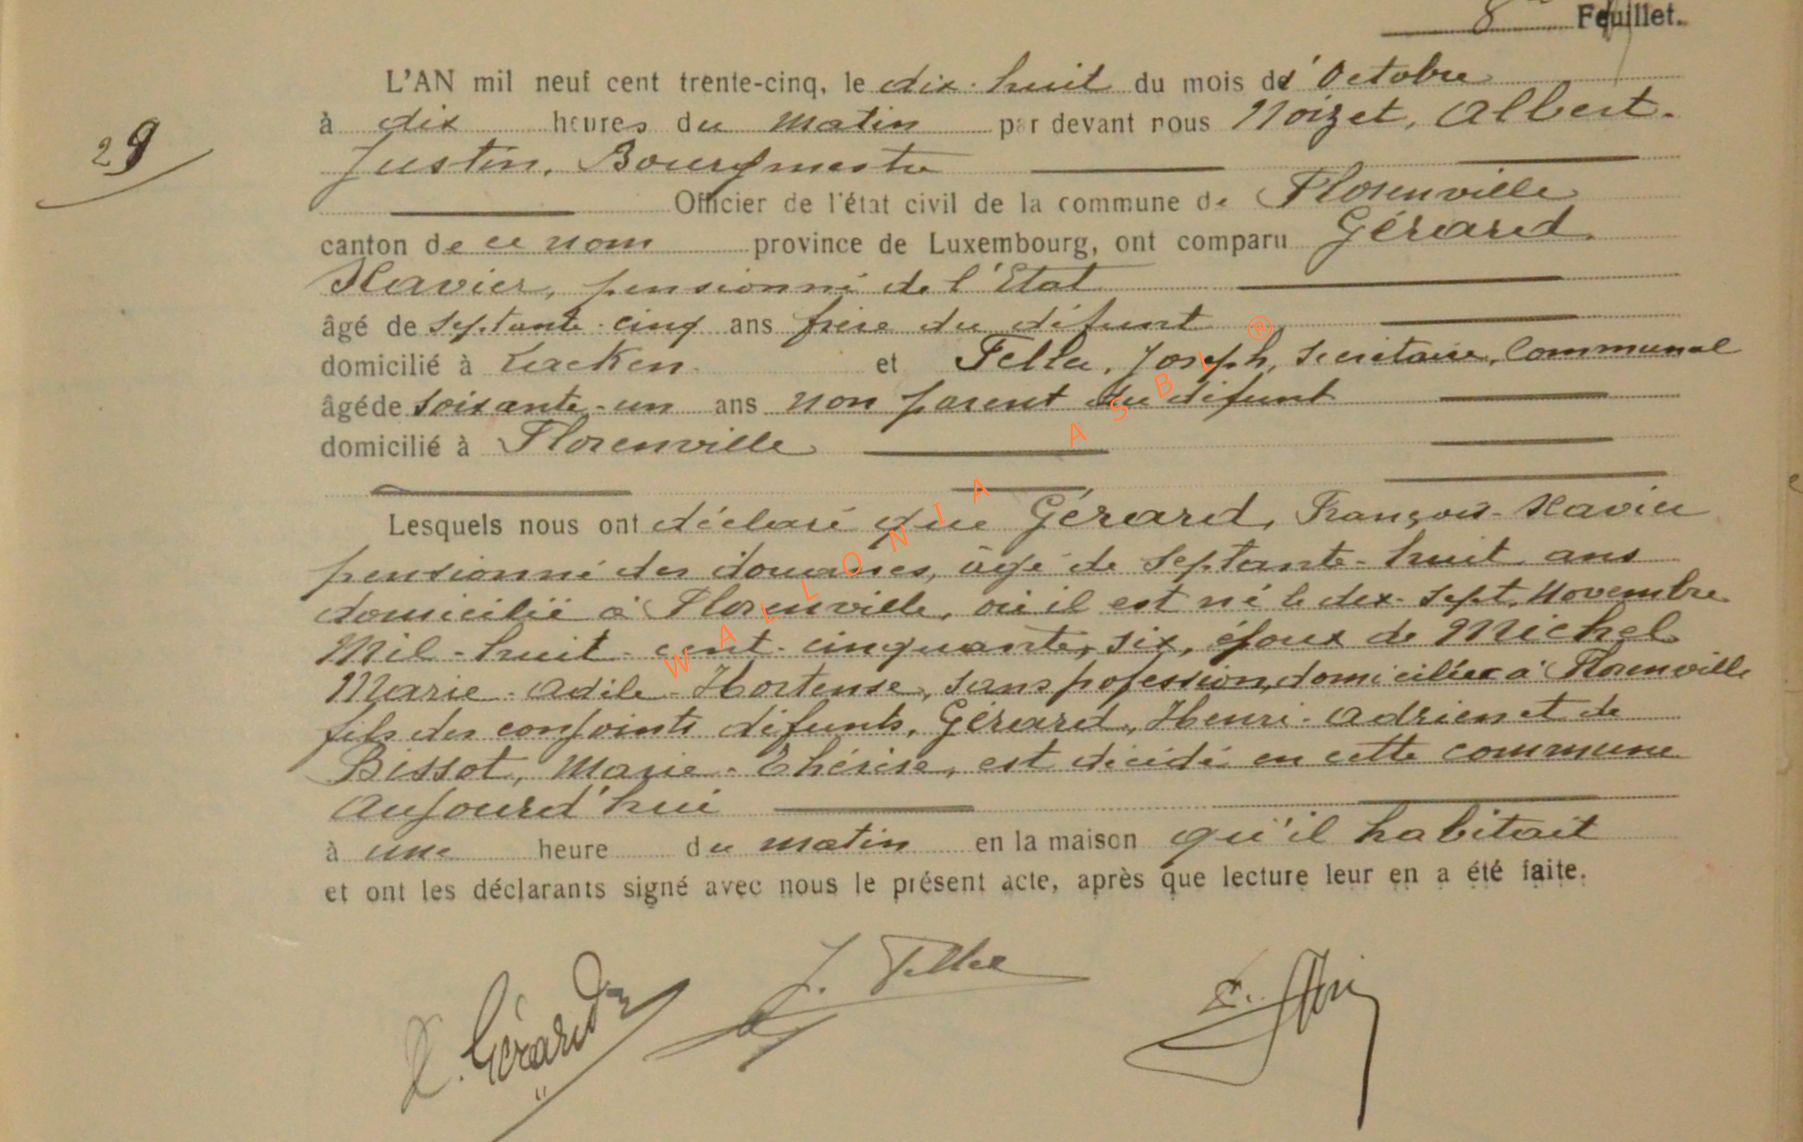 8me Feuillet.
L'AN mil neuf cent trente-cinq, le dix-huit du mois d'Octobre
29
à dix heures du matin par devant nous Noizet, Albert-
Justin, Bourgmestre
Officier de l'état civil de la commune de Florenville
canton de ce nom province de Luxembourg, ont comparu Gérard,
Xavier, pensionné de l'Etat
âgé de septante-cinq ans frère du défunt
domicilié à Laeken et Fella, Joseph, Secrétaire, Communal
âgé de soixante-un ans non parent du défunt
domicilié à Florenville
Lesquels nous ont déclaré que Gérard, François-Xavier
pensionné des douanes, âgé de septante-huit ans
domicilié à Florenville, où il est né le dix-sept Novembre
Mil-huit-cent-cinquante-six, époux de Michel
Marie-Adile-Hortense, sans pofession, domiciliée à Florenville
fils des conjoints défunts, Gérard, Henri-Adrien et de
Bissot, Marie-Thérèse, est décédé en cette commune
aujourd'hui
à une heure du matin en la maison qu'il habitait
et ont les déclarants signé avec nous le présent acte, après que lecture leur en a été faite.
X. Gérard J. Fella
WALLONIA ASBL ®